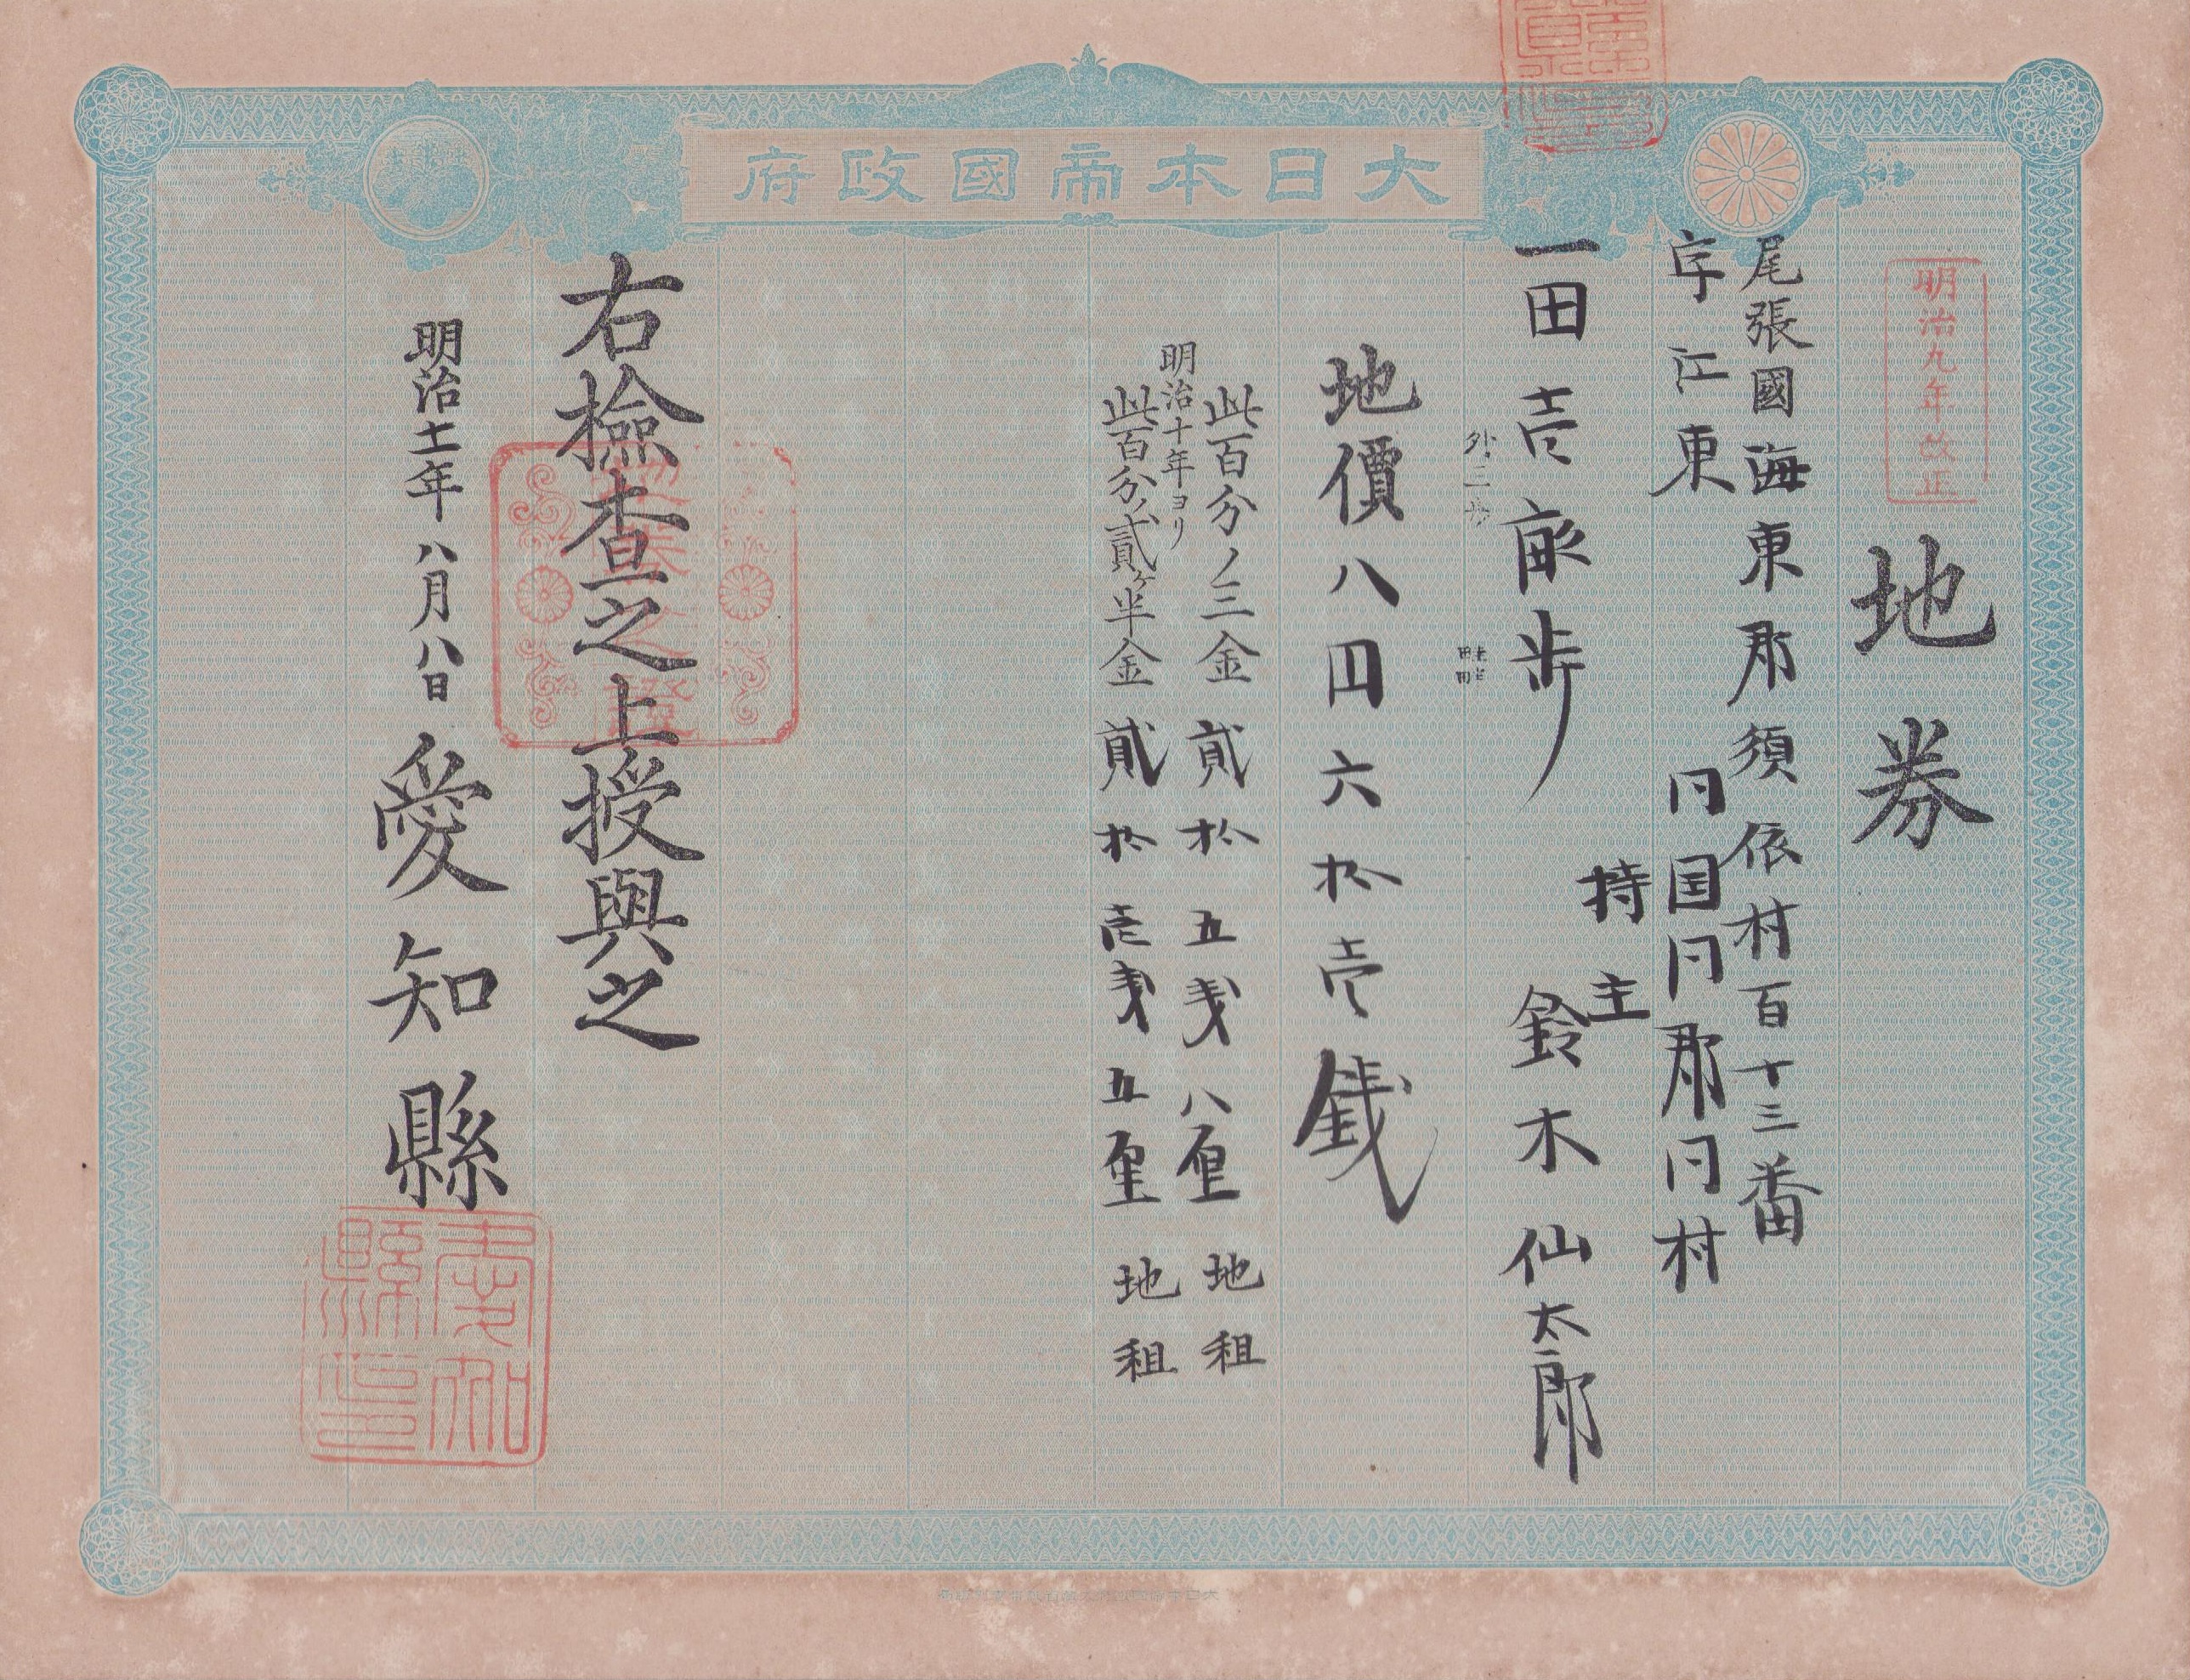 大日本帝國政府
明治九年改正
地券
尾張國海東郡須依村百十三番
字江東
同国同郡同村
持主
鈴木仙太郎
一田壱畝歩
外二歩
畦畔
地價八円六拾壱銭
此百分ノ三金貳拾五銭八厘 地租
明治十年ヨリ
此百分ノ貳ケ半金貳拾壱銭五厘 地租
右撿査之上授與之
明治十一年八月八日 愛知縣
愛知縣印